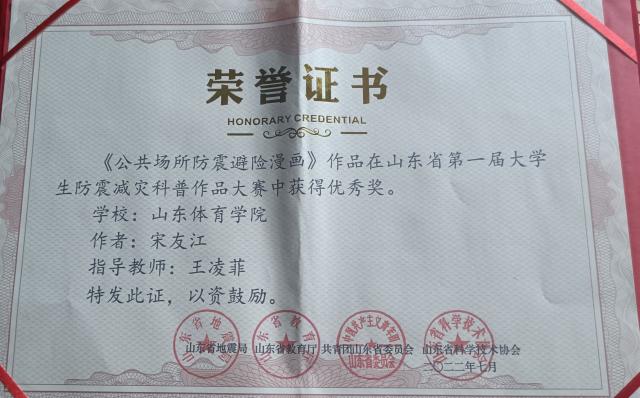 荣誉证书
HONORARY CREDENTIAL
《公共场所防震避险漫画》作品在山东省第一届大学
生防震减灾科普作品大赛中获得优秀奖。
学校：山东体育学院
作者：宋友江
指导教师：王凌菲
特发此证，以资鼓励。
山东省地震局 山东省教育厅 共青团山东省委员会 山东省科学技术协会
二〇二二年七月